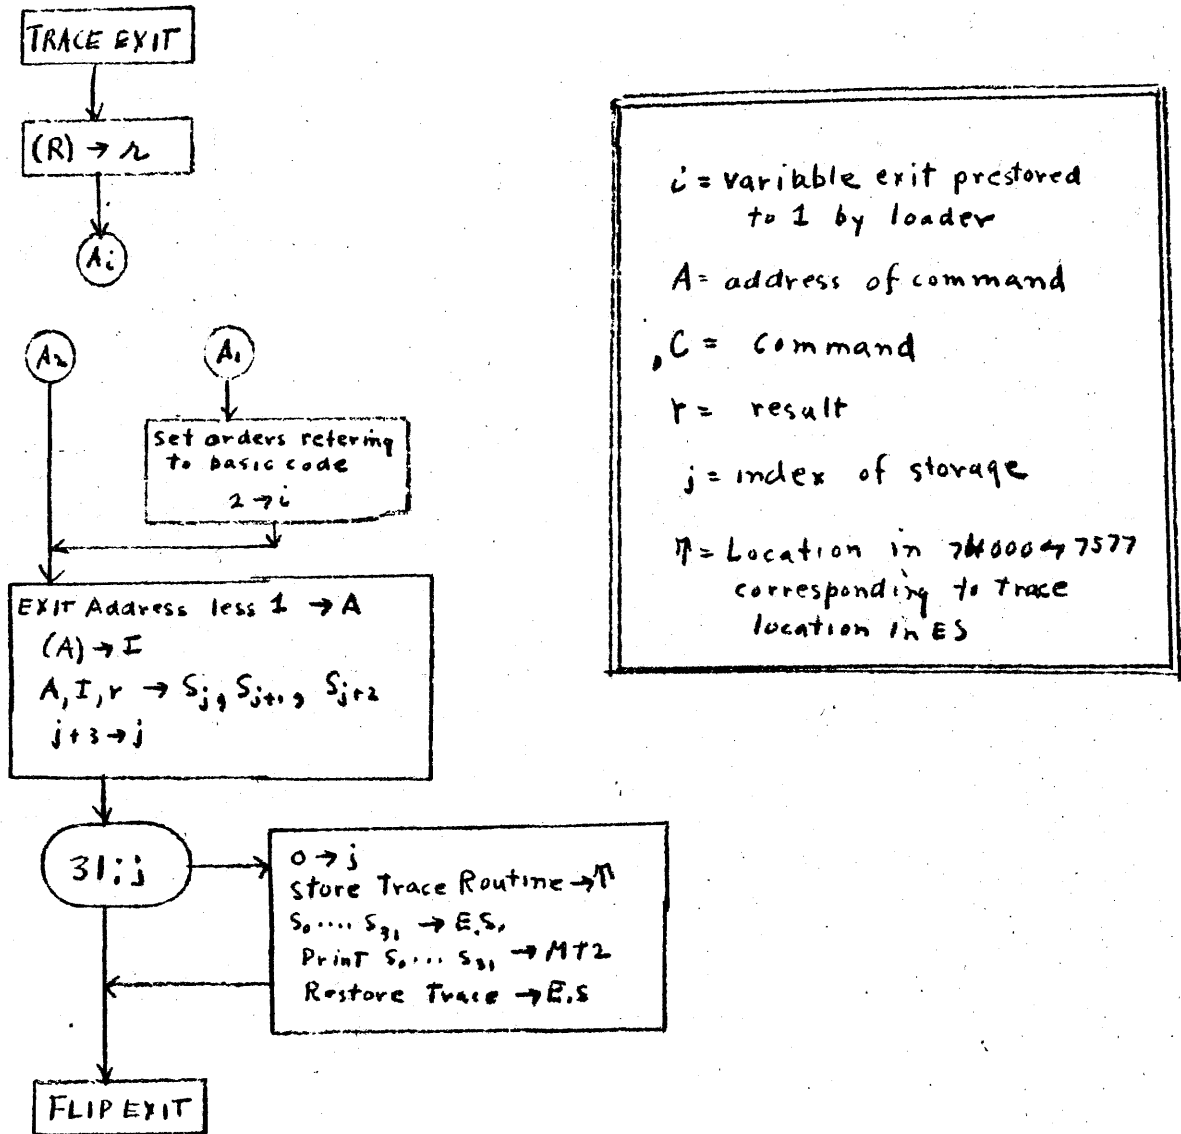 TRACE EXIT
(R) → r
Ai
A2
A1
Set orders refering
to basic code
2 → i
EXIT Address less 1 → A
(A) → I
A, I, r → Sj, Sj+1, Sj+2
j+3 → j
31:j
0 → j
Store Trace Routine → π
S0 .... S31 → E.S.
Print S0 ... S31 → MT2
Restore Trace → E.S
FLIP EXIT
i = variable exit prestored
to 1 by loader
A = address of command
C = command
r = result
j = index of storage
π = Location in 7577
corresponding to trace
location in ES